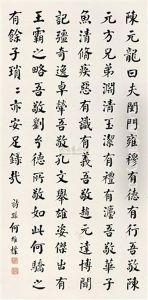 陳元龍曰夫閨門雍穆有德有行吾敬陳
元方兄弟淵清玉潔有禮有灋吾敬華子
魚清脩疾惡有識有義吾敬趙元達博聞
記彊奇逸卓犖吾敬孔文舉雄姿傑出有
王霸之略吾敬劉玄德所敬如此何驕之
有餘子瑣瑣亦安足録哉
詩孫何維樸